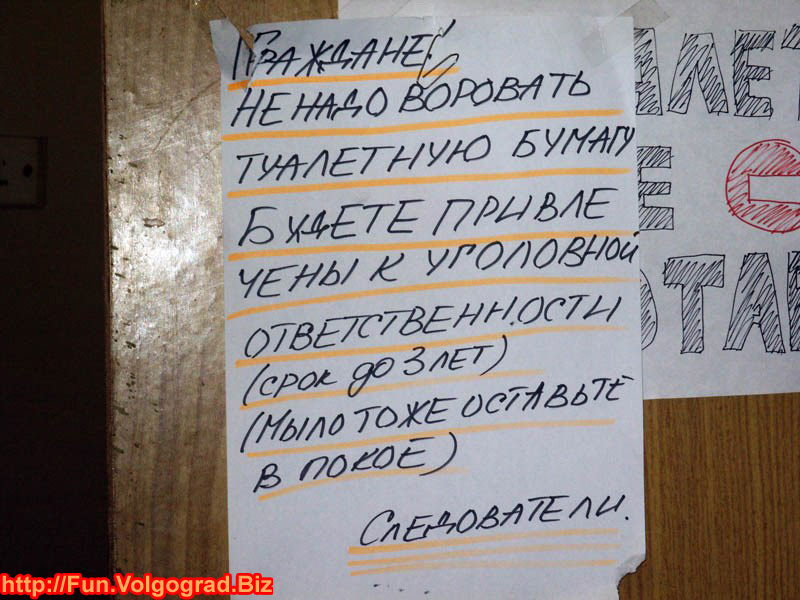 ГРАЖДАНЕ!
НЕ НАДО ВОРОВАТЬ
ТУАЛЕТНУЮ БУМАГУ
БУДЕТЕ ПРИВЛЕ
ЧЕНЫ К УГОЛОВНОЙ
ОТВЕТСТВЕННОСТИ
(СРОК ДО 3 ЛЕТ)
(МЫЛО ТОЖЕ ОСТАВЬТЕ
В ПОКОЕ)
СЛЕДОВАТЕЛИ.
АЛЕТ
Е
ОТА
http://Fun.Volgograd.Biz